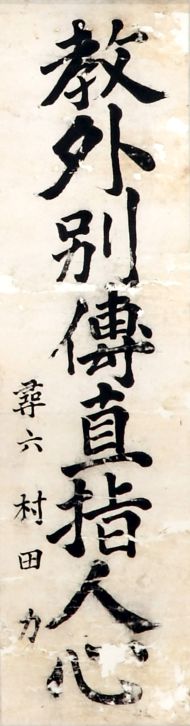 教外別傳直指人心
尋六 村田 力